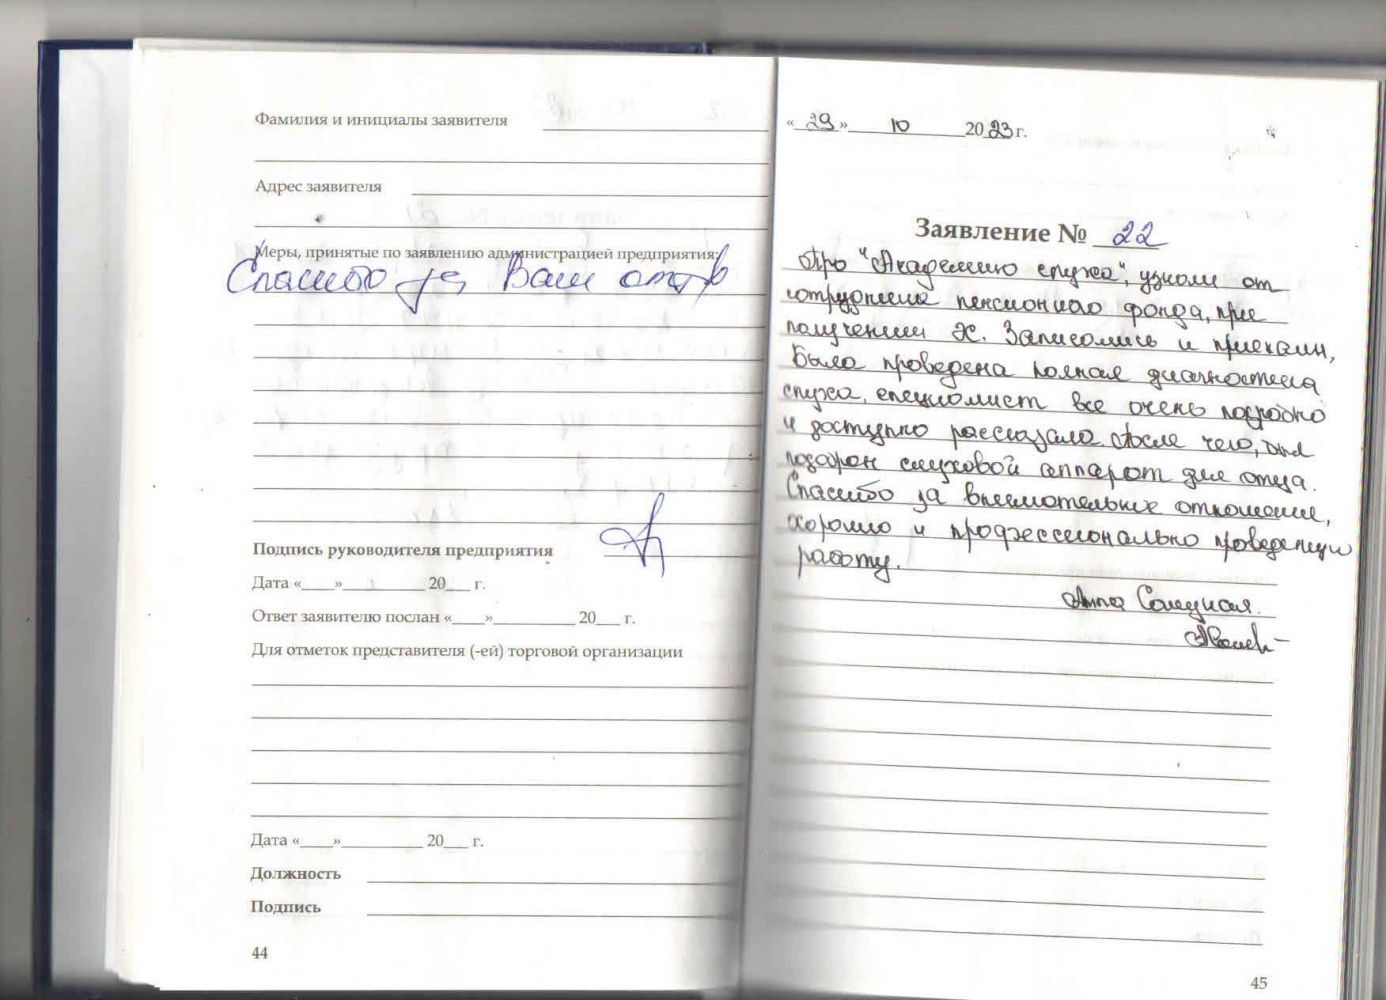 Фамилия и инициалы заявителя
Адрес заявителя
Меры, принятые по заявлению администрацией предприятия:
Спасибо за Ваш отзыв
Подпись руководителя предприятия
Дата «___»_________ 20___ г.
Ответ заявителю послан «___»_________ 20___ г.
Для отметок представителя (-ей) торговой организации
Дата «___»_________ 20___ г.
Должность
Подпись
44
«29» 10 2023 г.
Заявление № 22
Про "Академию слуха", узнали от
сотрудника пенсионного фонда, при
получении Ж. Записались и приехали,
Была проведена полная диагностика
слуха, специалист все очень подробно
и доступно рассказала. После чего, был
подарен слуховой аппарат для отца.
Спасибо за внимательное отношение,
хорошо и профессионально проведенную
работу.
Анна
45